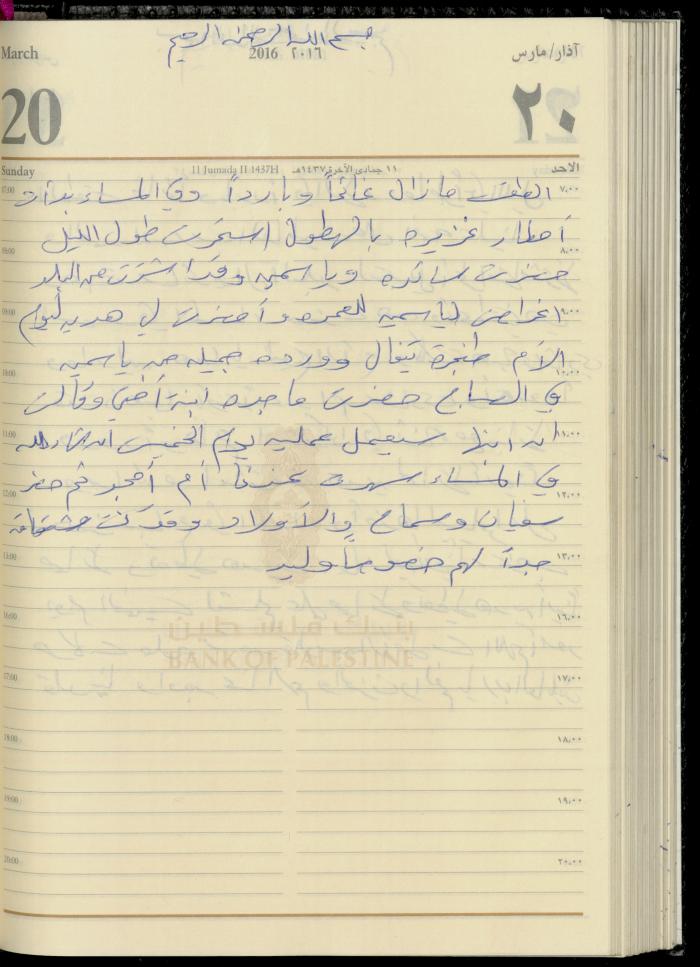 بسم الله الرحمن الرحيم
March 2016 ٢٠١٦ آذار/مارس
20 ٢٠
Sunday 11 Jumada II 1437H ١١ جمادى الآخرة ١٤٣٧هـ الاحد
07:00 الطقس ما زال غائماً وبارداً وفي المساء بدأت ٧،٠٠
أمطار غزيره بالهطول استمرت طول الليل
08:00 ٨،٠٠
حضرت شاكره وياسمين وقد اشترت من البلد
09:00 اغراض لياسمين للعمره وأحضرت لي هديه ليوم ٩،٠٠
الأم طنجرة تيفال وورده جميله من ياسمين
10:00 ١٠،٠٠
في الصباح حضرت ماجده ابنة أختي وقالت
11:00 ان ابنها سيعمل عمليه يوم الخميس ان شاء الله ١١،٠٠
في المساء سهرت عندنا أم أمجد ثم حضر
12:00 ١٢،٠٠
سفيان وسماح والأولاد وقد كنت مشتاقة
13:00 جداً لهم خصوصاً وليد ١٣،٠٠
16:00 ١٦،٠٠
بنك فلسطين
BANK OF PALESTINE
17:00 ١٧،٠٠
18:00 ١٨،٠٠
19:00 ١٩،٠٠
20:00 ٢٠،٠٠